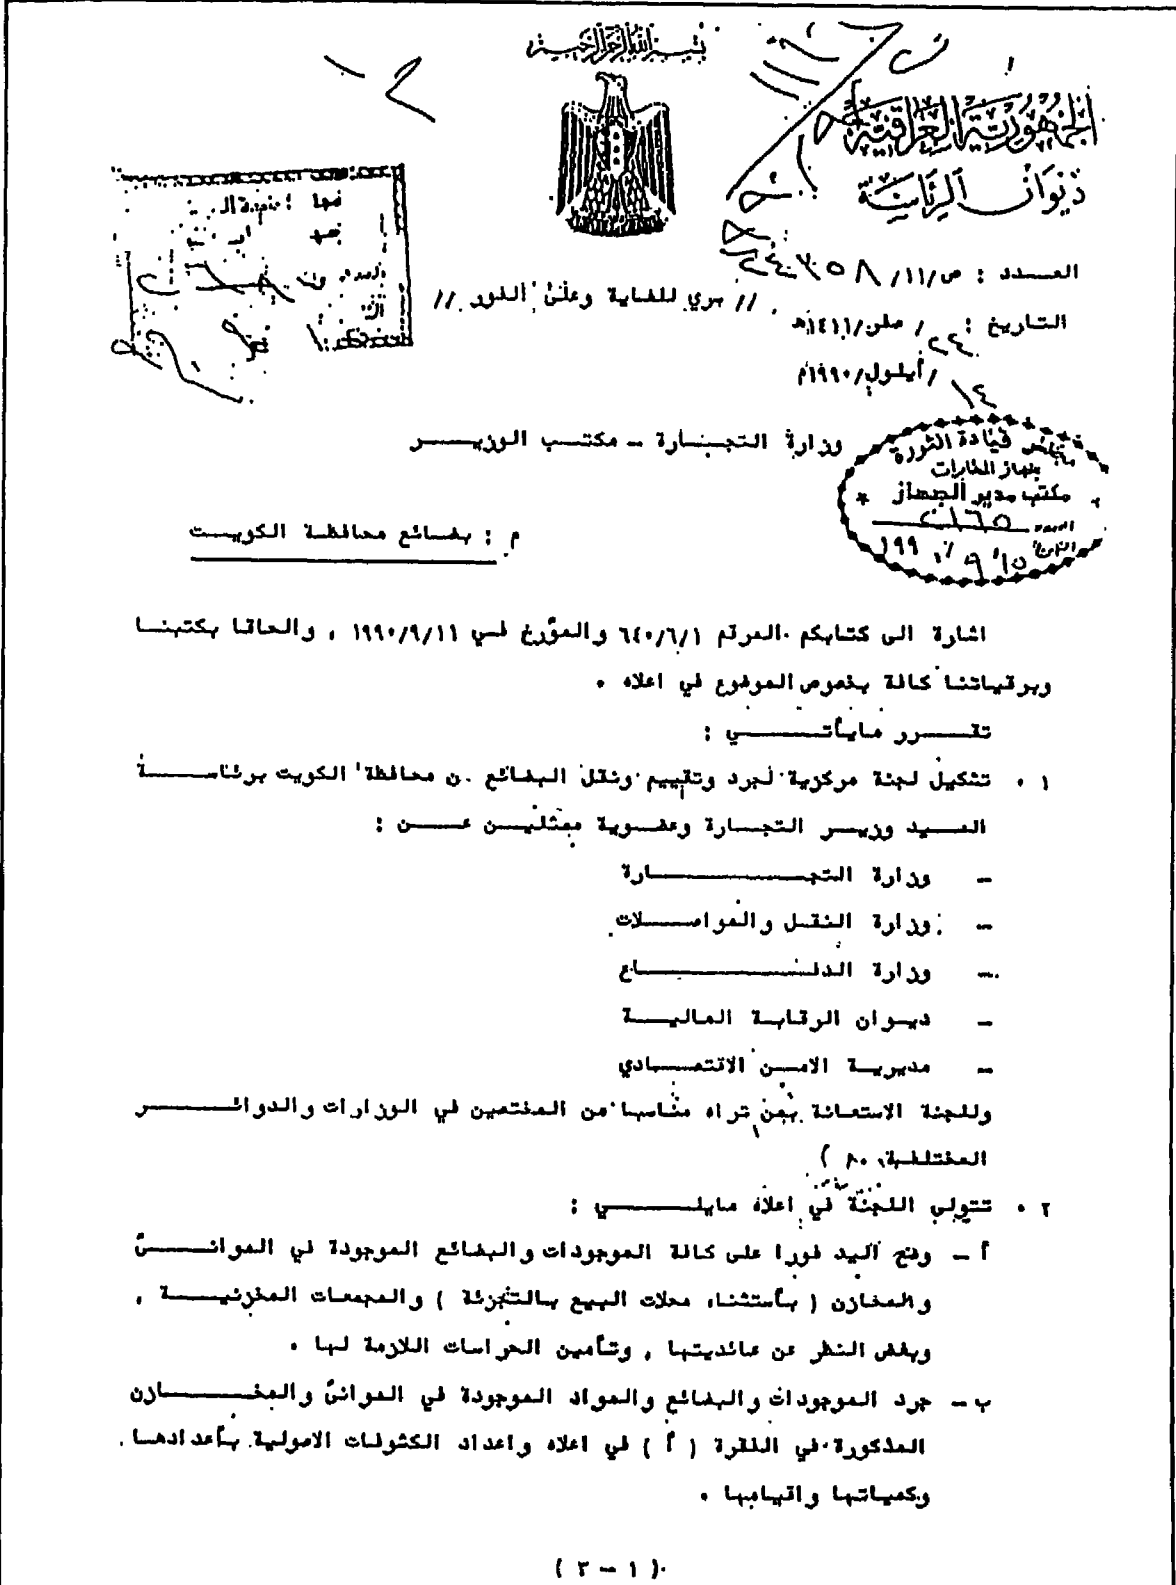 بسم الله الرحمن الرحيم
الجمهورية العراقية
ديوان الرئاسة
العـدد : ص/١١/
// سري للغاية وعلى الفور //
التاريخ : ٢٤/ صفر/١٤١١هـ
١٤ /أيلول/١٩٩٠م
مجلس قيادة الثورة
جهاز المخابرات
مكتب مدير الجهاز
العدد
التاريخ ١٥/ ٩ / ١٩٩٠
وزارة التجـارة - مكتـب الوزيـر
م : بضـائع محافظـة الكويـت
اشارة الى كتابكم المرقم ٦٤٠/٦/١ والمؤرخ فـي ١٩٩٠/٩/١١ , والحاقا بكتبنـا
وبرقياتنا كافة بخصوص الموضوع في اعلاه .
تقـرر مايأتـي :
١ . تشكيل لجنة مركزية لجرد وتقييم ونقل البضائع من محافظة الكويت برئاسـة
السـيد وزيـر التجـارة وعضـوية ممثليـن عـن :
- وزارة التجـارة
- وزارة النقـل والمواصـلات
- وزارة الدفـاع
- ديـوان الرقابـة الماليـة
- مديريـة الامـن الاقتصـادي
وللجنة الاستعـانة بمن تراه مناسبا من المختصين في الوزارات والدوائـر
المختلفـة .
٢ . تتولى اللجنة في اعلاه مايلـي :
أ - وضع اليد فورا على كافة الموجودات والبضائع الموجودة في الموانـئ
والمخازن ( بأستثناء محلات البيع بالتجزئة ) والمجمعات المخزنيـة ,
وبغض النظر عن عائديتها , وتأمين الحراسات اللازمة لها .
ب - جرد الموجودات والبضائع والمواد الموجودة في الموانئ والمخـازن
المذكورة في الفقرة ( أ ) في اعلاه واعداد الكشوفات الاصولية بأعدادهـا
وكمياتها واقيامها .
( ١ - ٣ )